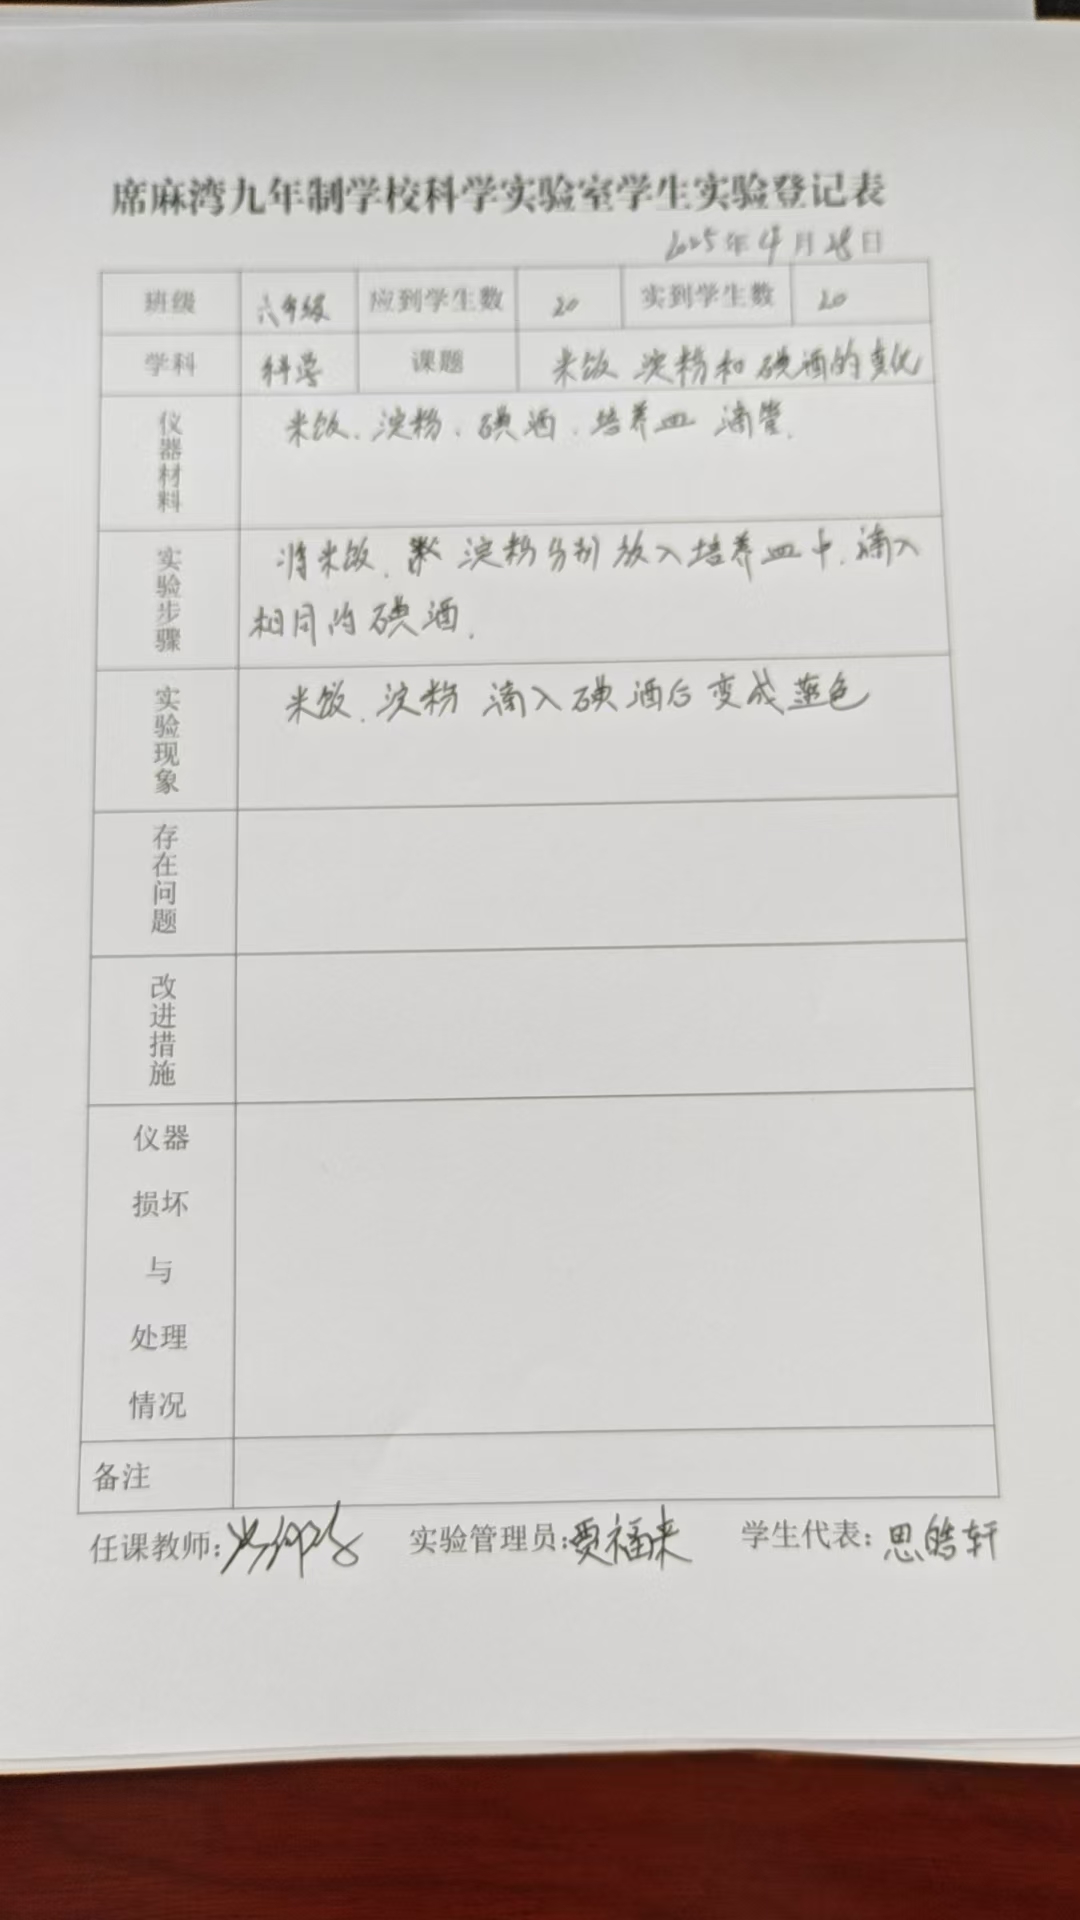 席麻湾九年制学校科学实验室学生实验登记表
2025年4月28日
班级 六年级 应到学生数 20 实到学生数 20
学科 科学 课题 米饭 淀粉和碘酒的变化
仪器材料 米饭、淀粉、碘酒、培养皿 滴管.
实验步骤 将米饭、淀粉分别放入培养皿中.滴入
相同的碘酒.
实验现象 米饭、淀粉 滴入碘酒后变成蓝色
存在问题
改进措施
仪器
损坏
与
处理
情况
备注
任课教师: 实验管理员:贾福来 学生代表:思皓轩